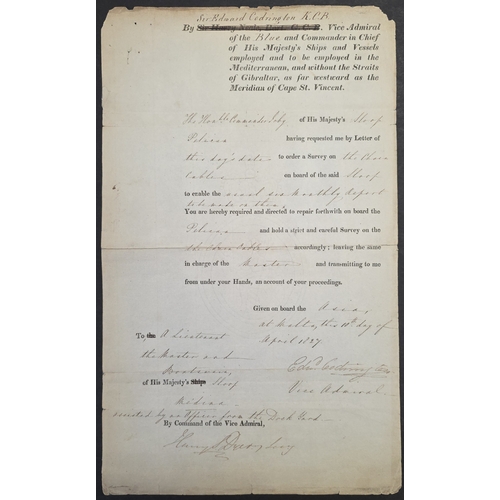 Sir Edward Codrington K.C.B.
By Sir Harry Neale, Bart. G.C.B. Vice Admiral
of the Blue and Commander in Chief
of His Majesty's Ships and Vessels
employed and to be employed in the
Mediterranean, and without the Straits
of Gibraltar, as far westward as the
Meridian of Cape St. Vincent.
The Honble Commander Irby of His Majesty's Sloop
Pelican having requested me by Letter of
this day's date to order a Survey on the Chain
Cables on board of the said Sloop
to enable the usual six Monthly report
to be made on them
You are hereby required and directed to repair forthwith on board the
Pelican and hold a strict and careful Survey on
the Chain Cables accordingly; leaving the same
in charge of the Master and transmitting to me
from under your Hands, an account of your proceedings.
Given on board the Asia,
at Malta, this 10th day of
April 1827
To the A Lieutenant
the Master and
Boatswain,
of His Majesty's Ships Sloop
Medina
assisted by an Officer from the Dock Yard
Edwd Codrington
Vice Admiral
By Command of the Vice Admiral,